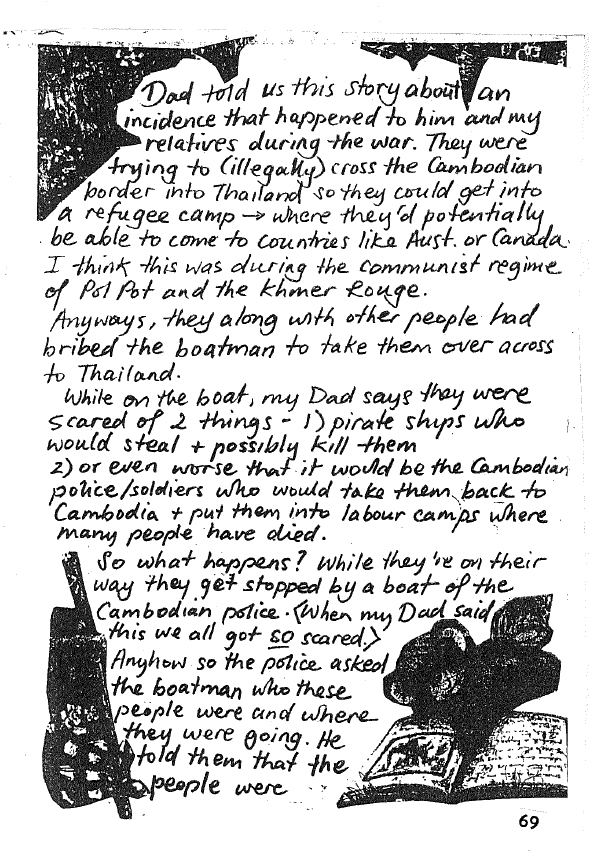 Dad told us this story about an
incidence that happened to him and my
relatives during the war. They were
trying to (illegally) cross the Cambodian
border into Thailand so they could get into
a refugee camp → where they'd potentially
be able to come to countries like Aust. or Canada.
I think this was during the communist regime
of Pol Pot and the Khmer Rouge.
Anyways, they along with other people had
bribed the boatman to take them over across
to Thailand.
While on the boat, my Dad says they were
scared of 2 things - 1) pirate ships who
would steal + possibly kill them
2) or even worse that it would be the Cambodian
police/soldiers who would take them back to
Cambodia + put them into labour camps where
many people have died.
So what happens? While they're on their
way they get stopped by a boat of the
Cambodian police. <When my Dad said
this we all got so scared.>
Anyhow so the police asked
the boatman who these
people were and where
they were going. He
told them that the
people were
69